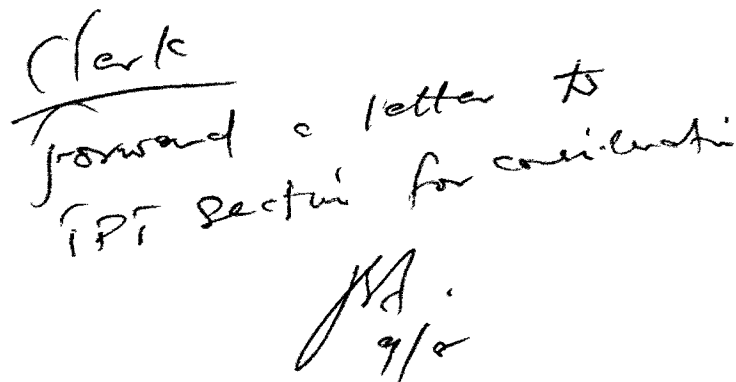 Clerk
Forward a letter to
TPT Section for consideration
9/8